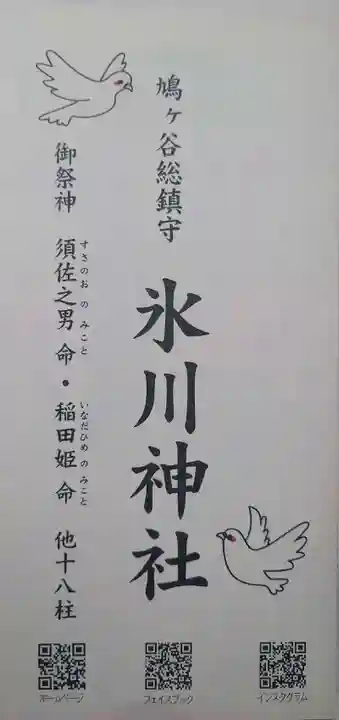 鳩ヶ谷総鎮守
氷川神社
御祭神 須佐之男命・稲田姫命 他十八柱
すさのおのみこと
いなだひめのみこと
ホームページ
フェイスブック
インスタグラム